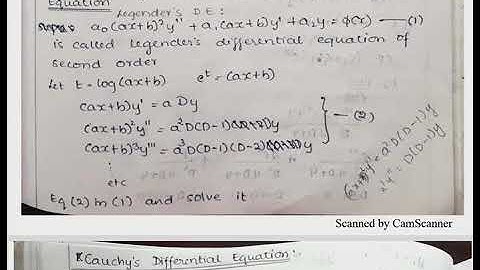 Equation
Legender's D.E:
a₀(ax+b)²y'' + a₁(ax+b)y' + a₂y = φ(x) — (1)
is called legender's differential equation of
second order
Let t = log(ax+b)    eᵗ = (ax+b)
(ax+b)y' = a Dy
(ax+b)²y'' = a²D(D-1)y
(ax+b)³y''' = a³D(D-1)(D-2)y
— (2)
⋮
etc
Eq (2) in (1) and solve it
y'' = a²D(D-1)y
x²y'' = D(D-1)y
Scanned by CamScanner
Cauchy's Differential Equation: